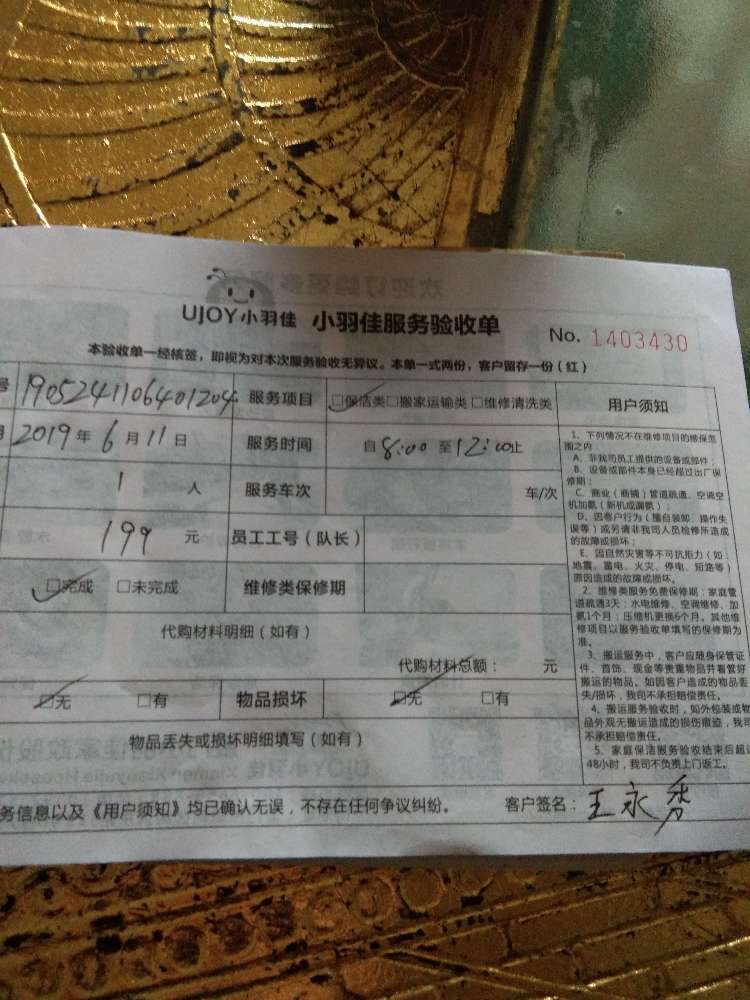 UJOY小羽佳 小羽佳服务验收单 No. 1403430
本验收单一经核签，即视为对本次服务验收无异议。本单一式两份，客户留存一份（红）
号 1905241106401204 服务项目 □保洁类□搬家运输类 □维修清洗类 用户须知
2019年6月11日 服务时间 自8:00至12:00止
1 人 服务车次 车/次
199 元 员工工号（队长）
□完成 □未完成 维修类保修期
代购材料明细（如有）
代购材料总额： 元
□无 □有 物品损坏 □无 □有
物品丢失或损坏明细填写（如有）
务信息以及《用户须知》均已确认无误，不存在任何争议纠纷。 客户签名：王永秀
1、下列情况不在维修项目的缴保范
围之内：
A、非我司员工提供的设备或部件；
B、设备或部件本身已经超过出厂保
修期；
C、商业（商铺）管道疏通、空调空
机加氟（新机或漏氟）；
D、因客户行为（擅自装卸、操作失
误等）或另请非我司人员检修所造成
的故障或损坏；
E、因自然灾害等不可抗拒力（如
地震、蓄电、火灾、停电、短路等）
原因造成的故障或损坏。
2、维修类服务免费保修期：家庭管
道疏通3天；水电维修、空调维修、加
氟1个月；压缩机更换6个月。其他维
修项目以服务验收单填写的保修期为
准。
3、搬运服务中，客户应随身保管证
件、首饰、现金等贵重物品并看管好
搬运的物品。如因客户造成的物品丢
失/损坏，我司不承担赔偿责任。
4、搬运服务验收时，如外包装或物
品外观无搬运造成的损伤痕迹，我司
不承担赔偿责任。
5、家庭保洁服务验收结束后超过
48小时，我司不负责上门返工。